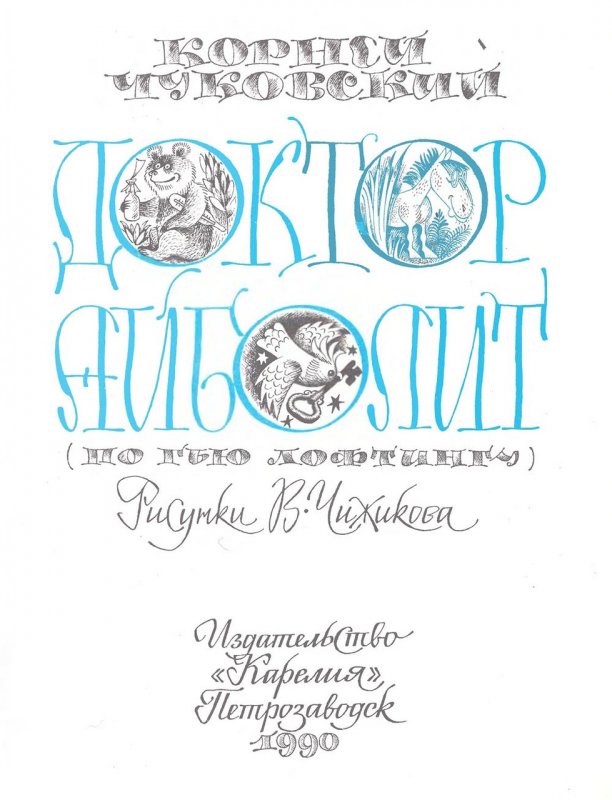 КОРНЕЙ
ЧУКОВСКИЙ
ДОКТОР
АЙБОЛИТ
(ПО ГЬЮ ЛОФТИНГУ)
Рисунки В. Чижикова
Издательство
«Карелия»
Петрозаводск
1990